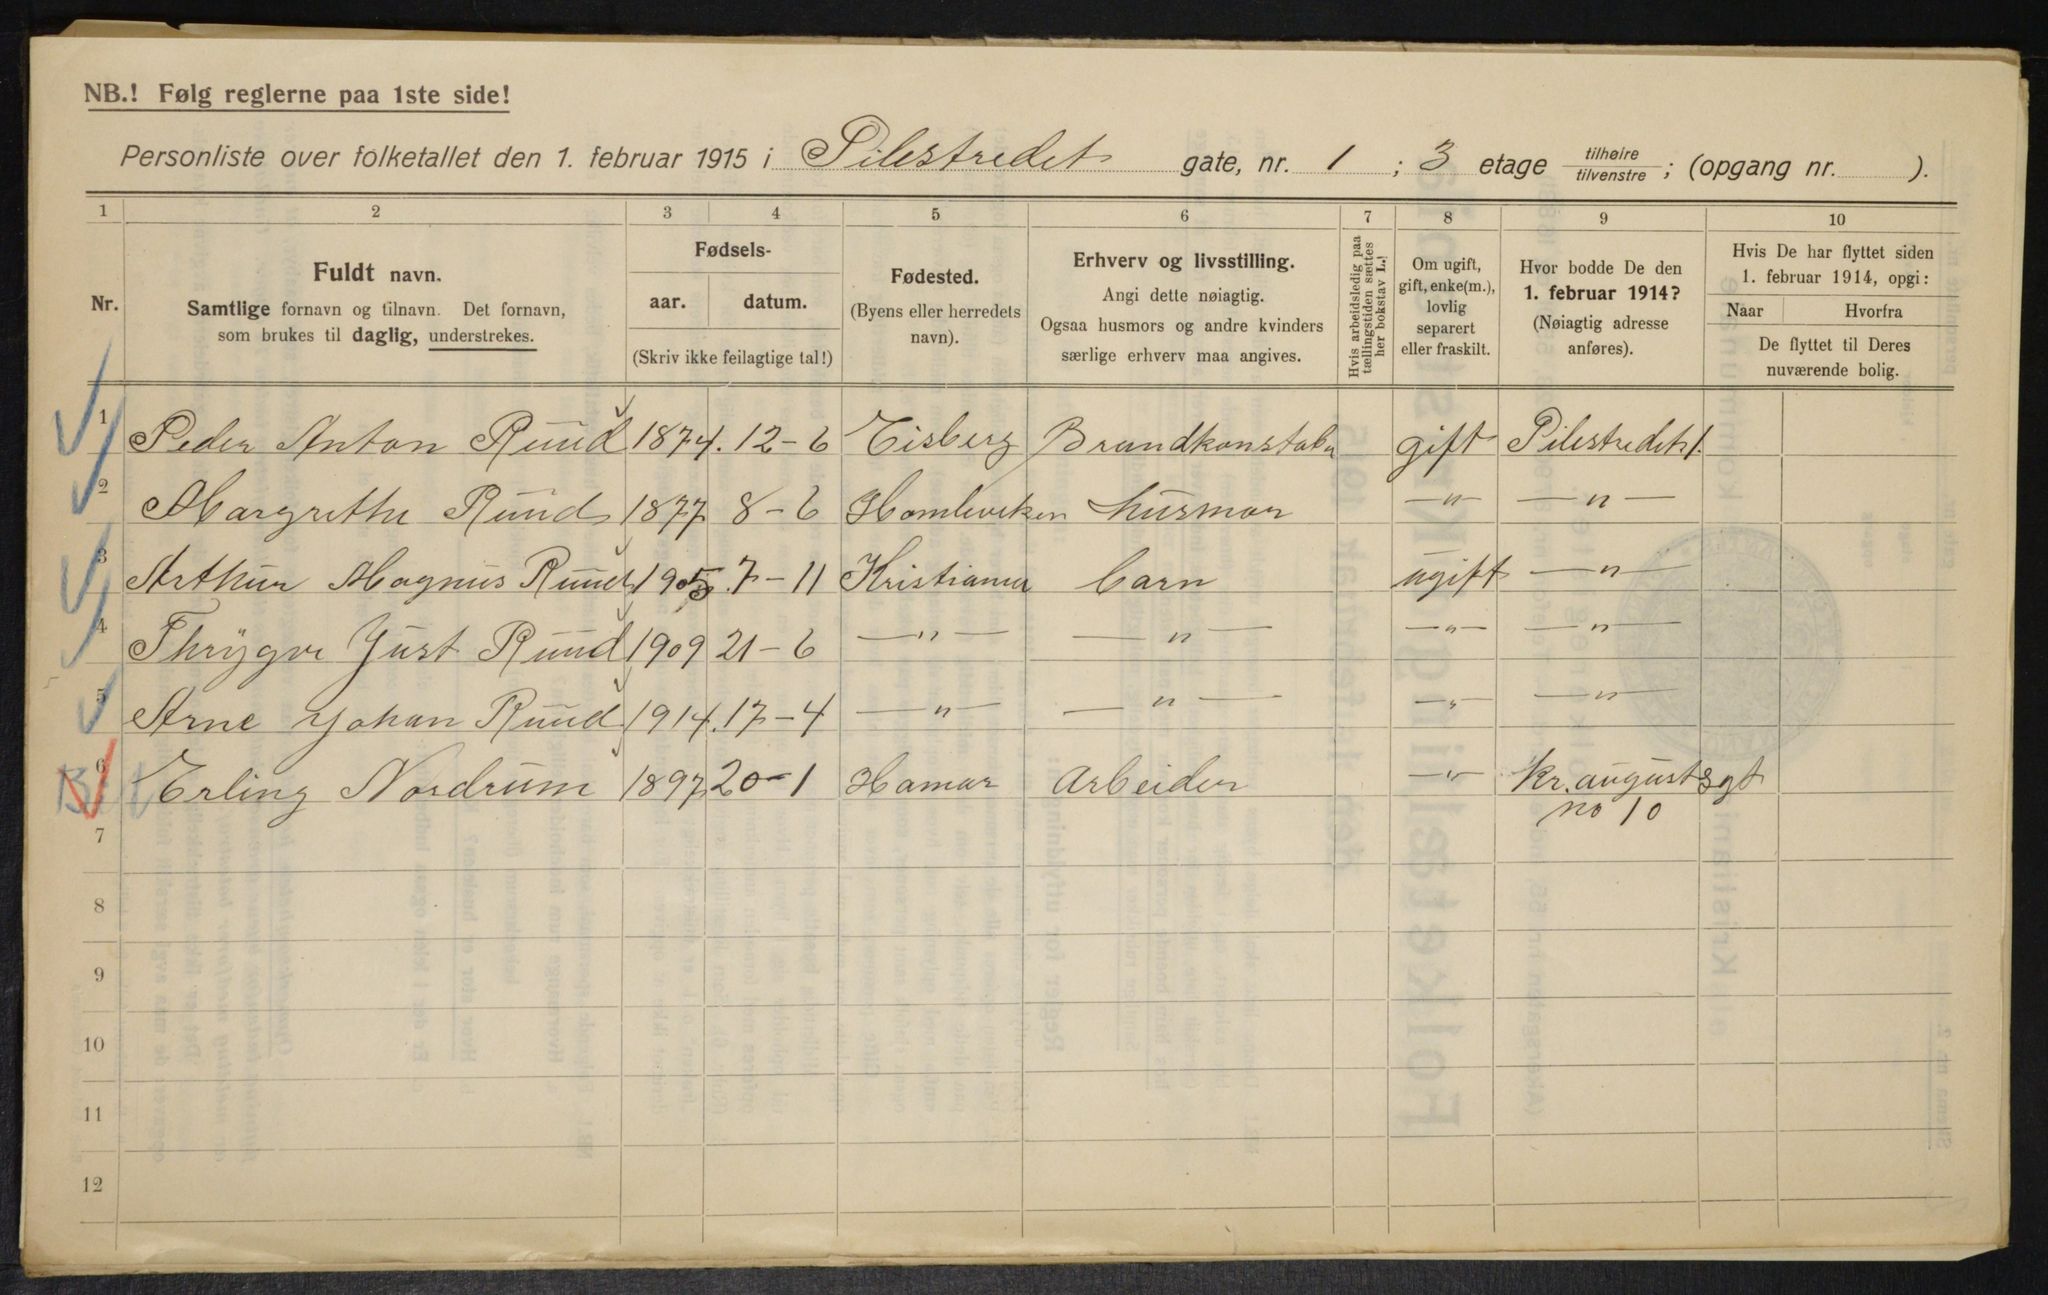 NB.! Følg reglerne paa 1ste side!
Personliste over folketallet den 1. februar 1915 i Pilestredet gate, nr. 1 ; 3 etage tilhøire tilvenstre ; (opgang nr. ).
1 2 3 4 5 6 7 8 9 10
Nr.
Fuldt navn.
Samtlige fornavn og tilnavn. Det fornavn,
som brukes til daglig, understrekes.
Fødsels-
aar. datum.
(Skriv ikke feilagtige tal!)
Fødested.
(Byens eller herredets
navn).
Erhverv og livsstilling.
Angi dette nøiagtig.
Ogsaa husmors og andre kvinders
særlige erhverv maa angives.
Hvis arbeidsledig paa
tællingstiden sættes
her bokstav L.!
Om ugift,
gift, enke(m.),
lovlig
separert
eller fraskilt.
Hvor bodde De den
1. februar 1914?
(Nøiagtig adresse
anføres).
Hvis De har flyttet siden
1. februar 1914, opgi:
Naar Hvorfra
De flyttet til Deres
nuværende bolig.
1 Peder Anton Ruud 1874. 12-6 Eisberg Brandkonstabu gift Pilestredet 1.
2 Margrethe Ruud 1877 8-6 Homleviken husmor —"— —"—
3 Arthur Magnus Ruud 1905 7-11 Kristiania barn ugift —"—
4 Thrygve Just Ruud 1909 21-6 —"— —"— —"— —"—
5 Arne Johan Ruud 1914. 17-4 —"— —"— —"— —"—
6 Erling Nordrum 1897 20-1 Hamar Arbeider —"— Kr. augustsgt
no 10
7
8
9
10
11
12